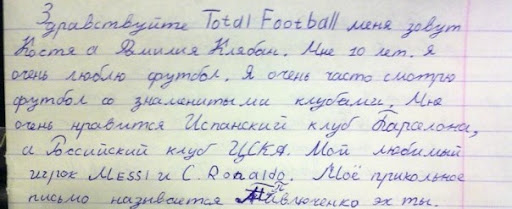 Здравствуйте Total Football меня зовут
Костя а Фамилия Клябан. Мне 10 лет. Я
очень люблю футбол. Я очень часто смотрю
футбол со знаменитыми клубами. Мне
очень нравится Испанский клуб Барселона,
и Российский клуб ЦСКА. Мой любимый
игрок Messi и C. Ronaldo. Моё прикольное
письмо называется эх ты.